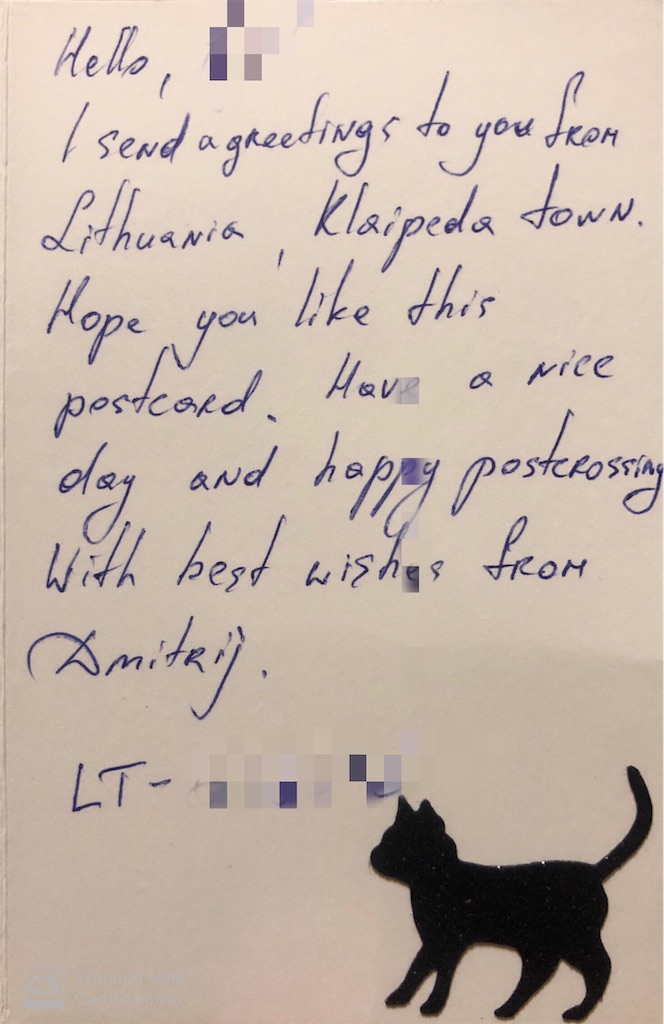 Hello,
I send a greetings to you from
Lithuania, Klaipeda town.
Hope you like this
postcard. Have a nice
day and happy postcrossing
With best wishes from
Dmitrij.
LT-
CS Scanned with
CamScanner